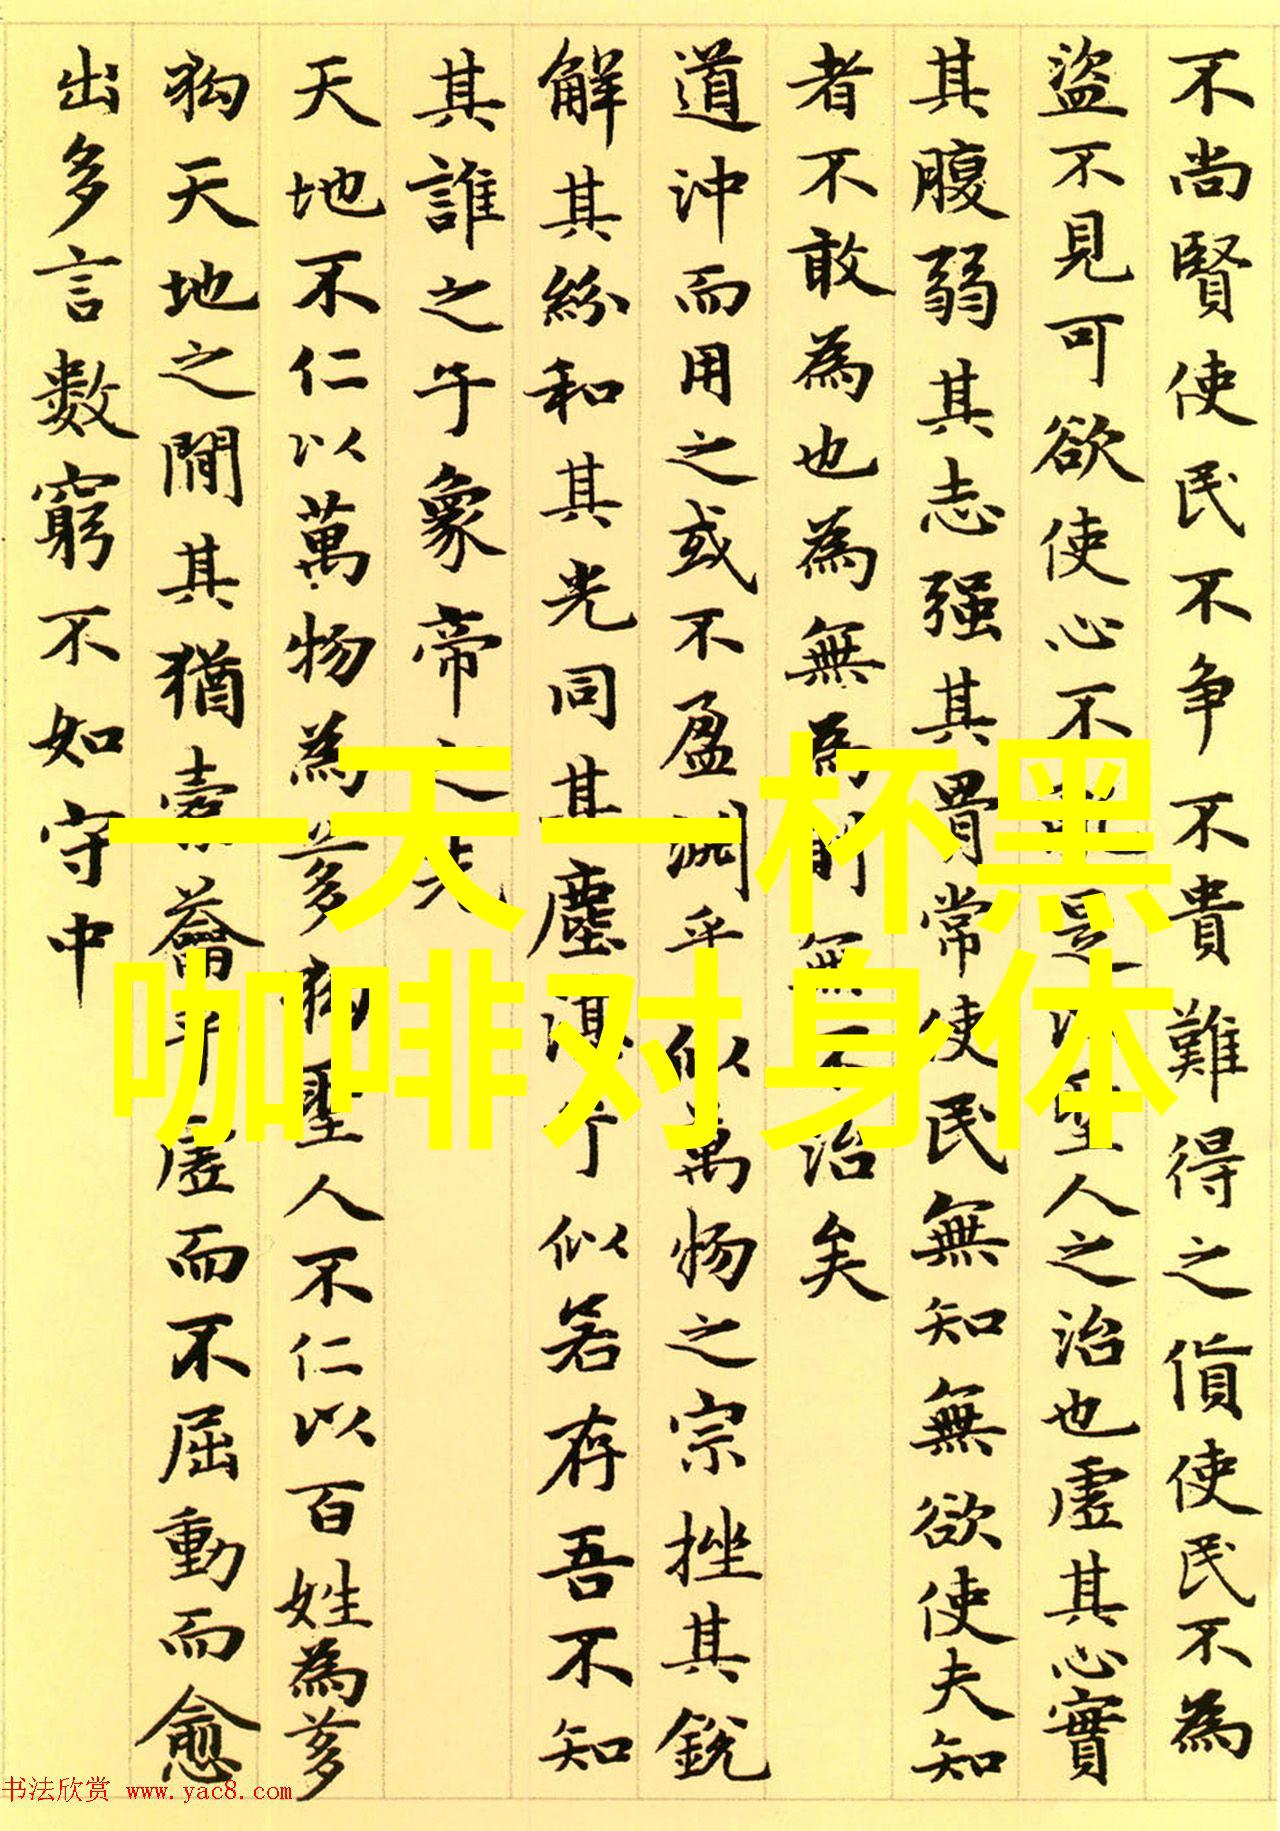 不尚賢使民不争不貴難得之貨使民不為
盜不見可欲使心不是以聖人之治也虛其心實
其腹弱其志强其骨常使民無知無欲使夫知
者不敢為也為無為則無不治矣
道沖而用之或不盈淵乎似萬物之宗挫其銳
解其紛和其光同其塵湛兮似若存吾不知
其誰之子象帝之先
天地不仁以萬物為芻狗聖人不仁以百姓為芻
狗天地之間其猶橐籥乎虛而不屈動而愈
出多言數窮不如守中
一天一杯黑
咖啡对身体
书法欣赏 www.yac8.com